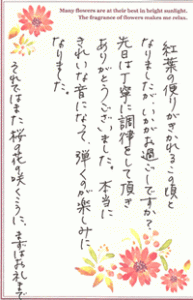 Many flowers are at their best in bright sunlight.
The fragrance of flowers makes me relax.
紅葉の便りがきかれるこの頃と
なりましたがいかがお過ごしですか?
先日は丁寧に調律をして頂き
ありがとうございました。本当に
きれいな音になって、弾くのが楽しみに
なりました。
それではまた桜の花の咲くころに、まずはお礼まで